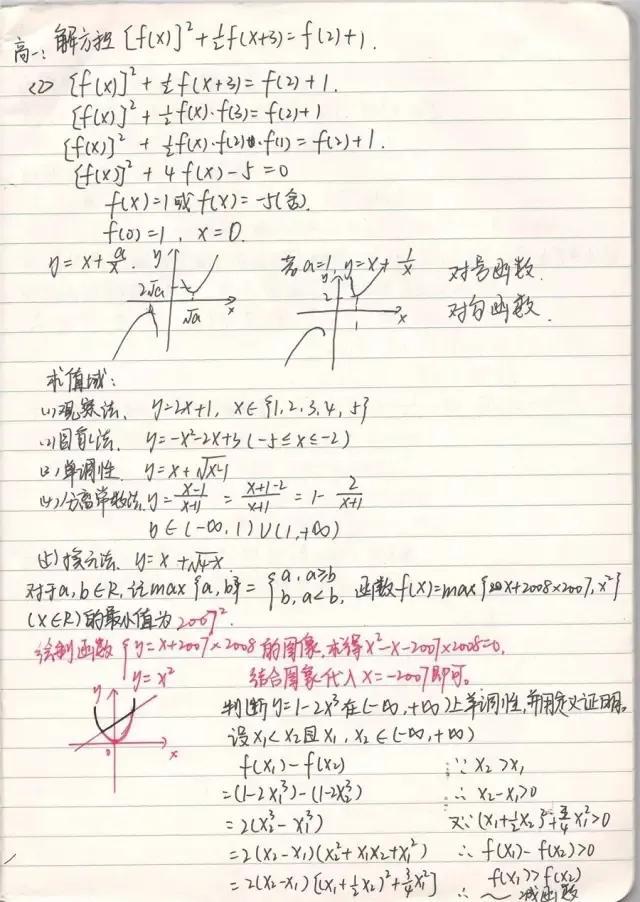 高一: 解方程 [f(x)]²+½f(x+3)=f(2)+1.
<2> [f(x)]²+½f(x+3)=f(2)+1.
[f(x)]²+½f(x)·f(3)=f(2)+1
[f(x)]²+½f(x)·f(2)·f(1)=f(2)+1.
[f(x)]²+4f(x)-5=0
f(x)=1或f(x)=-5(舍).
f(0)=1, x=0.
y=x+a/x. y 2√a √a x
若a=1, y=x+1/x y 2 1 x
对号函数.
对勾函数.
求值域:
(1)观察法. y=2x+1, x∈{1,2,3,4,5}
(2)图象法. y=-x²-2x+3(-5≤x≤-2)
(3)单调性. y=x+√x-1
(4)分离常数法. y=x-1/x+1=x+1-2/x+1=1-2/x+1
y∈(-∞,1)∪(1,+∞)
(5)换元法. y=x+√4-x.
对于a,b∈R,记max{a,b}={a,a≥b b,a<b, 函数f(x)=max{x+2008×2007,x²}
(x∈R)的最小值为2007².
绘制函数{y=x+2007×2008的图像.求得x²-x-2007×2008=0,
y=x² 结合图象代入x=-2007即可.
y 0 x
判断y=1-2x³在(-∞,+∞)上单调性,并用定义证明.
设x₁<x₂且x₁,x₂∈(-∞,+∞)
f(x₁)-f(x₂) ∵x₂>x₁
=(1-2x₁³)-(1-2x₂³) ∴x₂-x₁>0
=2(x₂³-x₁³) 又∵(x₁+½x₂)²+¾x₁²>0
=2(x₂-x₁)(x₂²+x₁x₂+x₁²) ∴f(x₁)-f(x₂)>0
=2(x₂-x₁)[(x₁+½x₂)²+¾x₁²] f(x₁)>f(x₂)
∴~减函数